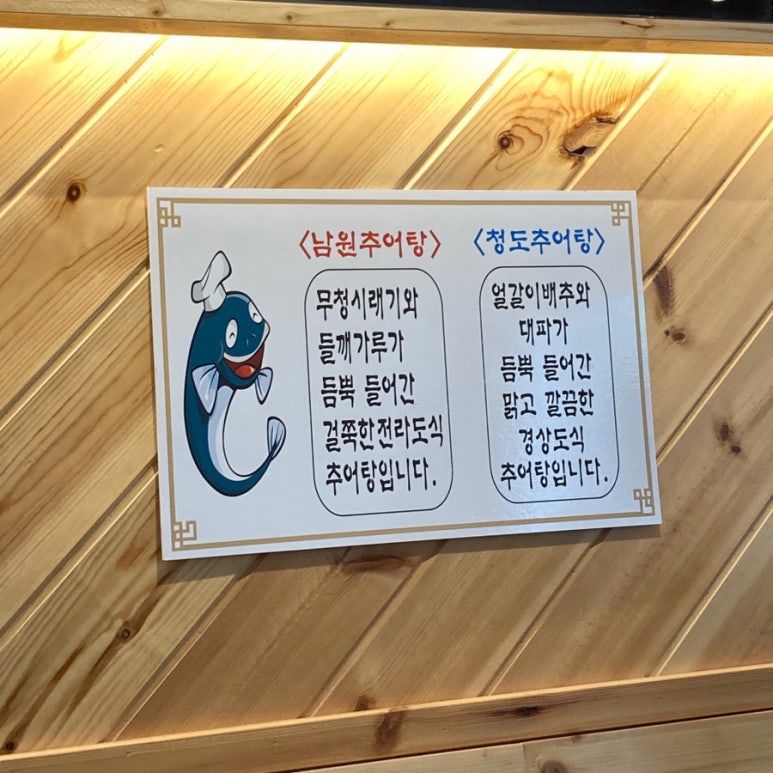 <남원추어탕>
무청시래기와
들깨가루가
듬뿍 들어간
걸쭉한전라도식
추어탕입니다.
<청도추어탕>
얼갈이배추와
대파가
듬뿍 들어간
맑고 깔끔한
경상도식
추어탕입니다.